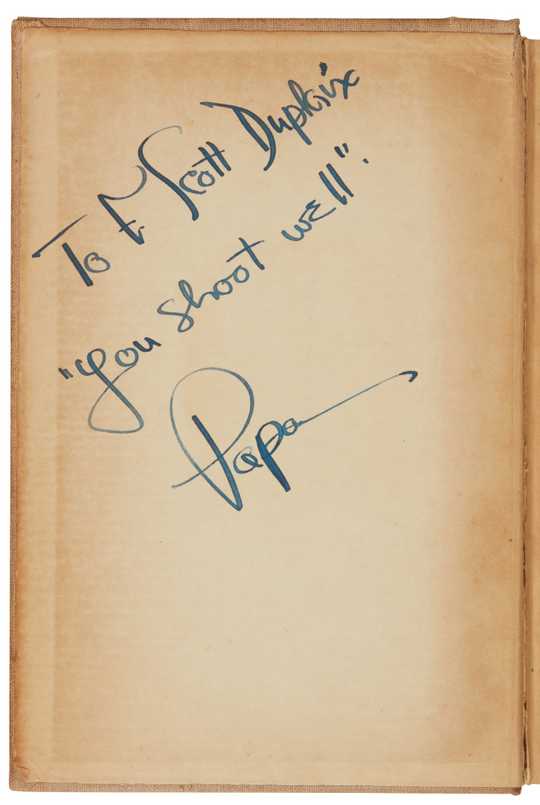 To F Scott Dupkivx
"you shoot well".
Papa